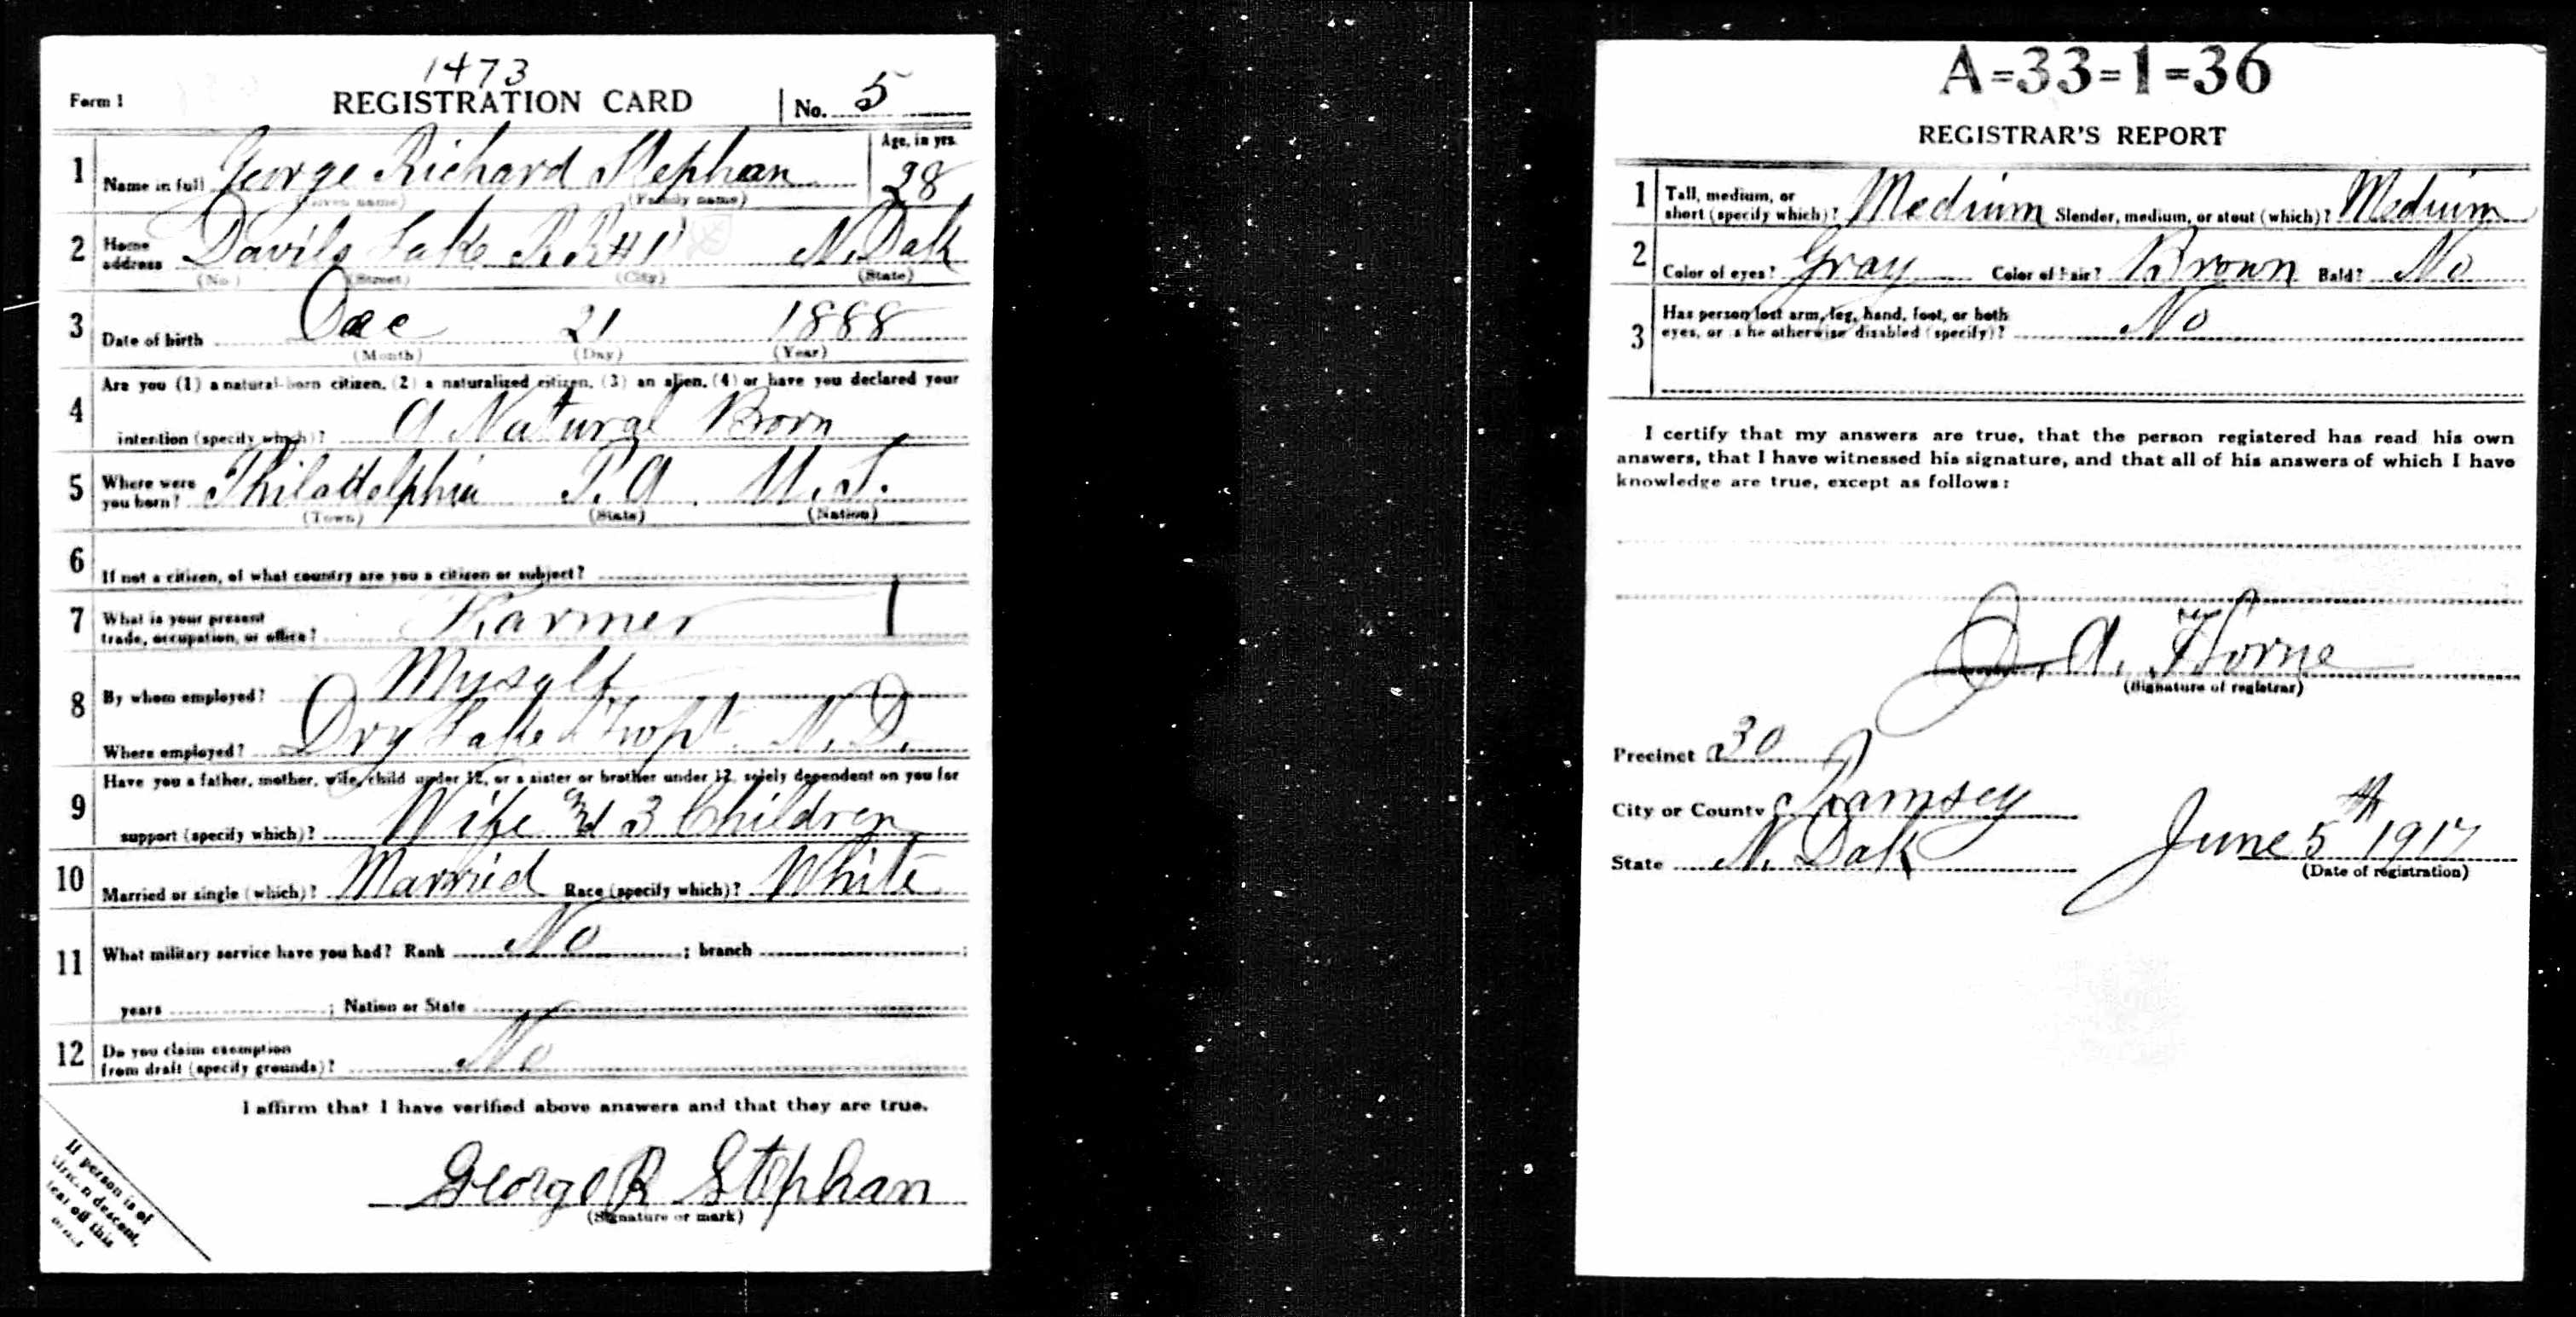 1473
Form 1 REGISTRATION CARD No. 5
1 Name in full George Richard Stephan Age, in yrs. 28
(Given name) (Family name)
2 Home address Davils Lake R.R#1 N. Dak
(No.) (Street) (City) (State)
3 Date of birth Dec 21 1888
(Month) (Day) (Year)
4 Are you (1) a natural-born citizen, (2) a naturalized citizen, (3) an alien, (4) or have you declared your
intention (specify which)? A Natural Born
5 Where were you born? Philadelphia P.A. U.S.
(Town) (State) (Nation)
6 If not a citizen, of what country are you a citizen or subject?
7 What is your present
trade, occupation, or office? Farmer 1
8 By whom employed? Myself
Where employed? Dry Lake Twp N.D.
9 Have you a father, mother, wife, child under 12, or a sister or brother under 12, solely dependent on you for
support (specify which)? Wife and 3 Children
10 Married or single (which)? Married Race (specify which)? White
11 What military service have you had? Rank No ; branch ;
years ; Nation or State
12 Do you claim exemption
from draft (specify grounds)? No
I affirm that I have verified above answers and that they are true.
George R Stephan
(Signature or mark)
If person is of
African descent,
tear off this
corner
A=33=1=36
REGISTRAR'S REPORT
1 Tall, medium, or
short (specify which)? Medium Slender, medium, or stout (which)? Medium
2 Color of eyes? Gray Color of hair? Brown Bald? No
3 Has person lost arm, leg, hand, foot, or both
eyes, or is he otherwise disabled (specify)? No
I certify that my answers are true, that the person registered has read his own
answers, that I have witnessed his signature, and that all of his answers of which I have
knowledge are true, except as follows:
A. Horne
(Signature of registrar)
Precinct 30
City or County Ramsey
State N. Dak June 5th 1917
(Date of registration)